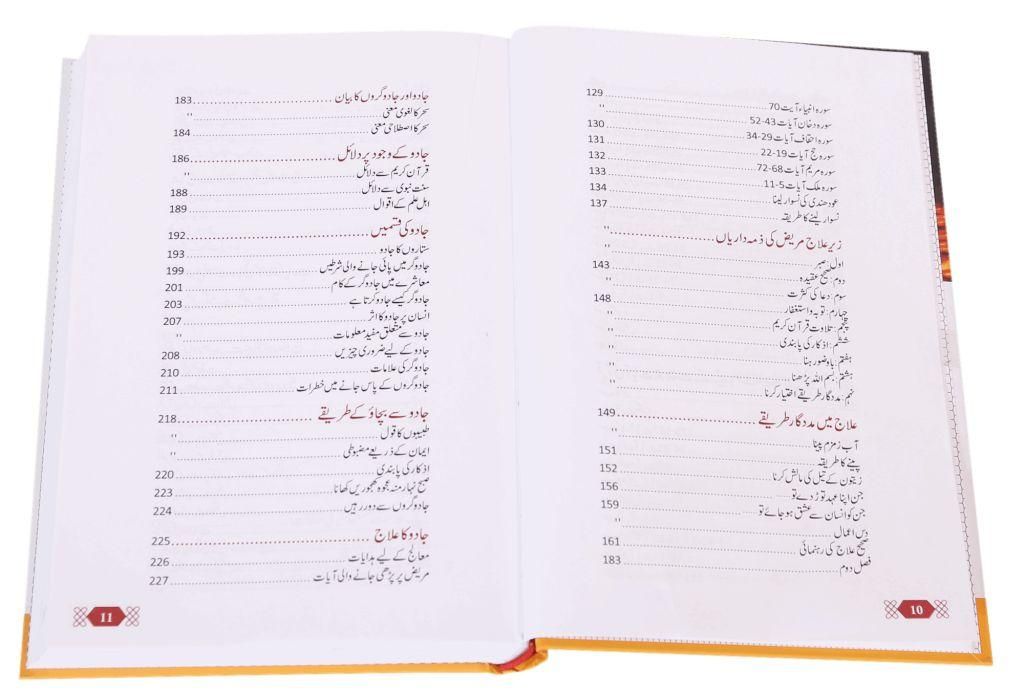 سورہ انبیاء آیت 70 ............ 129
سورہ دخان آیات 43-52 ............ "
سورہ احقاف آیات 29-34 ............ 130
سورہ حج آیات 19-22 ............ 131
سورہ مریم آیات 68-72 ............ 132
سورہ ملک آیات 5-11 ............ 133
عود ھندی کی نسوار لینا ............ 134
نسوار لینے کا طریقہ ............ 137
زیر علاج مریض کی ذمہ داریاں ............ "
اول: صبر ............ "
دوم: صحیح عقیدہ ............ 143
سوم: دعا کی کثرت ............ "
چہارم: توبہ واستغفار ............ 148
پنجم: تلاوت قرآن کریم ............ "
ششم: اذکار کی پابندی ............ "
ہفتم: باوضو رہنا ............ "
ہشتم: بسم اللہ پڑھنا ............ "
نہم: مددگار طریقے اختیار کرنا ............ "
علاج میں مددگار طریقے ............ 149
آب زمزم پینا ............ "
پینے کا طریقہ ............ 151
زیتون کے تیل کی مالش کرنا ............ 152
جن اپنا عہد توڑ دے تو ............ 156
جن کو انسان سے عشق ہو جائے تو ............ 159
دس اعمال ............ "
صحیح علاج کی رہنمائی ............ 161
فصل دوم ............ 183
10
جادو اور جادوگروں کا بیان ............ 183
سحر کا لغوی معنی ............ "
سحر کا اصطلاحی معنی ............ 184
جادو کے وجود پر دلائل ............ 186
قرآن کریم سے دلائل ............ "
سنت نبوی سے دلائل ............ 188
اہل علم کے اقوال ............ 189
جادو کی قسمیں ............ 192
ستاروں کا جادو ............ 193
جادوگر میں پائی جانے والی شرطیں ............ 199
معاشرے میں جادوگر کے کام ............ 201
جادوگر کیسے جادو کرتا ہے ............ 203
انسان پر جادو کا اثر ............ 207
جادو سے متعلق مفید معلومات ............ "
جادو کے لیے ضروری چیزیں ............ 208
جادوگر کی علامات ............ 210
جادوگروں کے پاس جانے میں خطرات ............ 211
جادو سے بچاؤ کے طریقے ............ 218
طبیبوں کا قول ............ "
ایمان کے ذریعے مضبوطی ............ "
اذکار کی پابندی ............ 220
صبح نہار منہ عجوہ کھجوریں کھانا ............ 223
جادوگروں سے دور رہیں ............ 224
جادو کا علاج ............ 225
معالج کے لیے ہدایات ............ 226
مریض پر پڑھی جانے والی آیات ............ 227
11